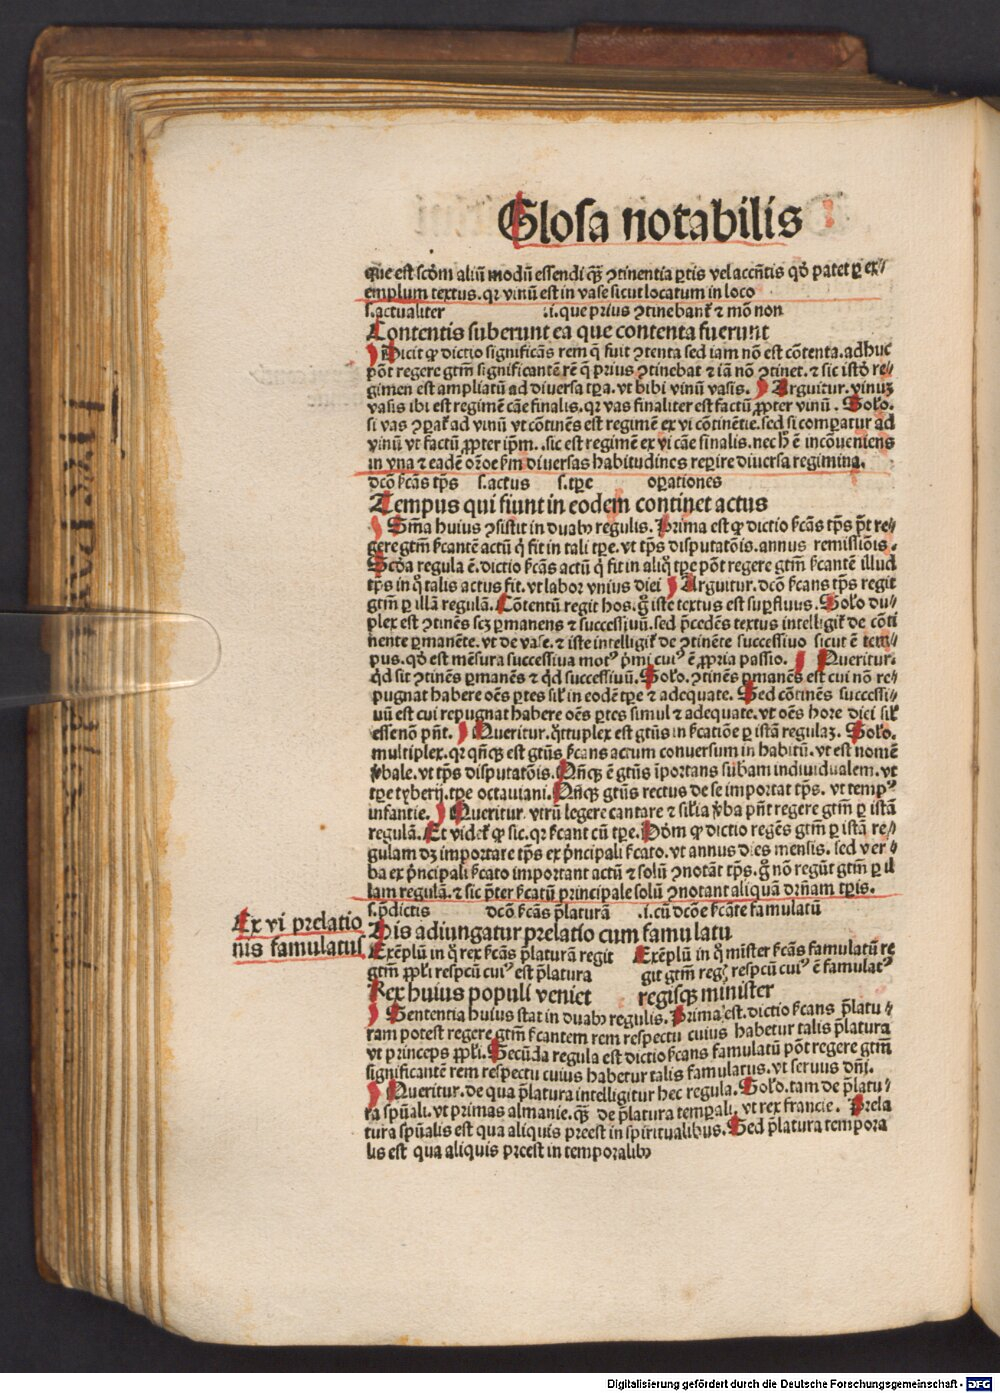 Glosa notabilis
que est scōm aliū modū essendi qȝ ꝯtinentia ꝑtis vel accn̄tis qd̓ patet ꝑ ex⸗
emplum textus. qꝛ vinū est in vase sicut locatum in loco
s. actualiter .i. que prius ꝯtinebant̄ ⁊ mō non
Contentis suberunt ea que contenta fuerunt
Dicit ꝙ dictio significās rem q̄ fuit ꝯtenta sed iam nō est cōtenta. adhuc
pōt regere gtm̄ significantē rē q̄ prius ꝯtinebat ⁊ iā nō ꝯtinet. ⁊ sic istd̓ re⸗
gimen est ampliatū ad diuersa tꝑa. vt bibi vinū vasis. Arguitur. vinuȝ
vasis ibi est regimē cāe finalis. qꝛ vas finaliter est factū ꝓpter vinū. Solo.
si vas ꝯꝑat̄ ad vinū vt cōtinēs est regimē ex vi cōtinētie. sed si comꝑatur ad
vinū vt factū ꝓpter ip̄m. sic est regimē ex vi cāe finalis. nec h̄ ē incōueniens
in vna ⁊ eadē or̄oe km̄ diuersas habitudines reꝑire diuersa regimina.
dcō ſcās tp̄s s. actus s. tꝑe oꝑationes
Tempus qui fiunt in eodem continet actus
Sm̄a huius ꝯsistit in duabꝰ regulis. Prima est ꝙ dictio ſcās tp̄s pōt re⸗
gere gtm̄ ſcantē actū q̇ fit in tali tꝑe. vt tp̄s disputatōis. annus remissiōis.
Scd̓a regula ē. dictio ſcās actū q̇ fit in aliq̊ tꝑe pōt regere gtm̄ ſcantē illud
tp̄s in q̊ talis actus fit. vt labor vnius diei Arguitur. dcō ſcans tp̄s regit
gtm̄ ꝑ illā regulā. Cōtentū regit hos. g̊ iste textus est suꝑfluus. Solo du⸗
plex est ꝯtinēs scȝ ꝑmanens ⁊ successiuū. sed p̄cedēs textus intelligit̄ de cōti
nente ꝑmanēte. vt de vase. ⁊ iste intelligit̄ de ꝯtinēte successiuo sicut ē tem⸗
pus. qd̓ est mēsura successiua motꝰ p̓mi cuiꝰ ē ꝓpria passio. Queritur.
qd̓ sit ꝯtinēs ꝑmanēs ⁊ qd̓ successiuū. Solo. ꝯtinēs ꝑmanēs est cui nō re⸗
pugnat habere oēs ꝑtes sil̄ in eodē tꝑe ⁊ adequate. Sed cōtinēs successi⸗
uū est cui repugnat habere oēs ꝑtes simul ⁊ adequate. vt oēs hore diei sil̄
esse nō pn̄t. Queritur. q̊tuplex est gtūs in ſcatiōe ꝑ istā regulaȝ. Solo.
multiplex. qꝛ qn̄qȝ est gtūs ſcans actum conuersum in habitū. vt est nomē
v̓bale. vt tp̄s disputatōis. Qn̄qȝ ē gtūs īportans sub̄am indiuidualem. vt
tꝑe tyberij. tꝑe octauiani. Qn̄qȝ gtūs rectus de se importat tp̄s. vt tempꝰ
infantie. Queritur vtrū legere cantare ⁊ sil̄ia v̓ba pn̄t regere gtm̄ ꝑ istā
regulā. Et videt̄ ꝙ sic. qꝛ ſcant cū tꝑe. Dōm ꝙ dictio regēs gtm̄ ꝑ istā re⸗
gulam dȝ importare tp̄s ex p̓ncipali ſcato. vt annus dies mensis. sed ver⸗
ba ex p̓ncipali ſcato important actū ⁊ solū ꝯnotāt tp̄s. g̊ nō regūt gtm̄ ꝑ il
lam regulā. ⁊ sic p̄ter ſcatū principale solū ꝯnotant aliquā dr̄nam tꝑis.
s. p̄dictis dcō ſcās p̄laturā .i. cū dcōe ſcāte famulatū
Ex vi prelatio
nis famulatus
His adiungatur prelatio cum famulatu
Exēplū in q̊ rex ſcās p̄laturā regit
gtm̄ ꝓpl̓i respcū cuiꝰ est p̄latura
Exēplū in q̊ mīster ſcās famulatū re
git gtm̄ regȝ respcū cuiꝰ ē famulatꝰ
Rex huius populi veniet regisqȝ minister
Sententia huius stat in duabꝰ regulis. Prima est. dictio ſcans p̄latu⸗
ram potest regere gtm̄ ſcantem rem respectu cuius habetur talis p̄latura
vt princeps ꝓpl̓i. Secūda regula est dictio ſcans famulatū pōt regere gtm̄
significantē rem respectu cuius habetur talis famulatus. vt seruus dn̄i.
Queritur. de qua p̄latura intelligitur hec regula. Solo. tam de p̄latu⸗
ra spūali. vt primas almanie. qȝ de p̄latura temꝑali. vt rex francie. Prela
tura spūalis est qua aliquis preest in spiritualibus. Sed p̄latura tempora
lis est qua aliquis preest in temporalibꝰ
Digitalisierung gefördert durch die Deutsche Forschungsgemeinschaft - DFG